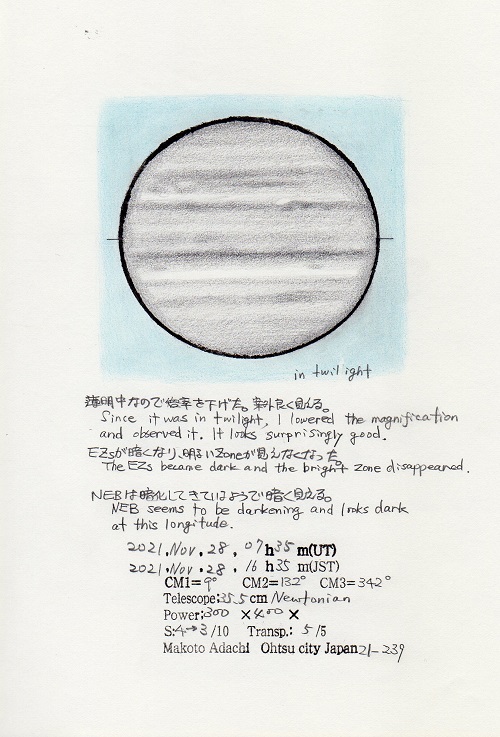 in twilight
薄明中なので倍率を下げた。案外良く見える。
Since it was in twilight, I lowered the magnification
and observed it. It looks surprisingly good.
EZsが暗くなり、明るいzoneが見えなくなった。
The EZs became dark and the bright zone disappeared.
NEBは暗化してきているようで暗く見える。
NEB seems to be darkening and looks dark
at this longitude.
2021. Nov. 28, 07h35m(UT)
2021. Nov. 28. 16h35m(JST)
CM1=9° CM2=132° CM3=342°
Telescope:35.5cm Newtonian
Power:300 ×400 ×
S:4→3/10 Transp.: 5/5
Makoto Adachi Ohtsu city Japan 21-239